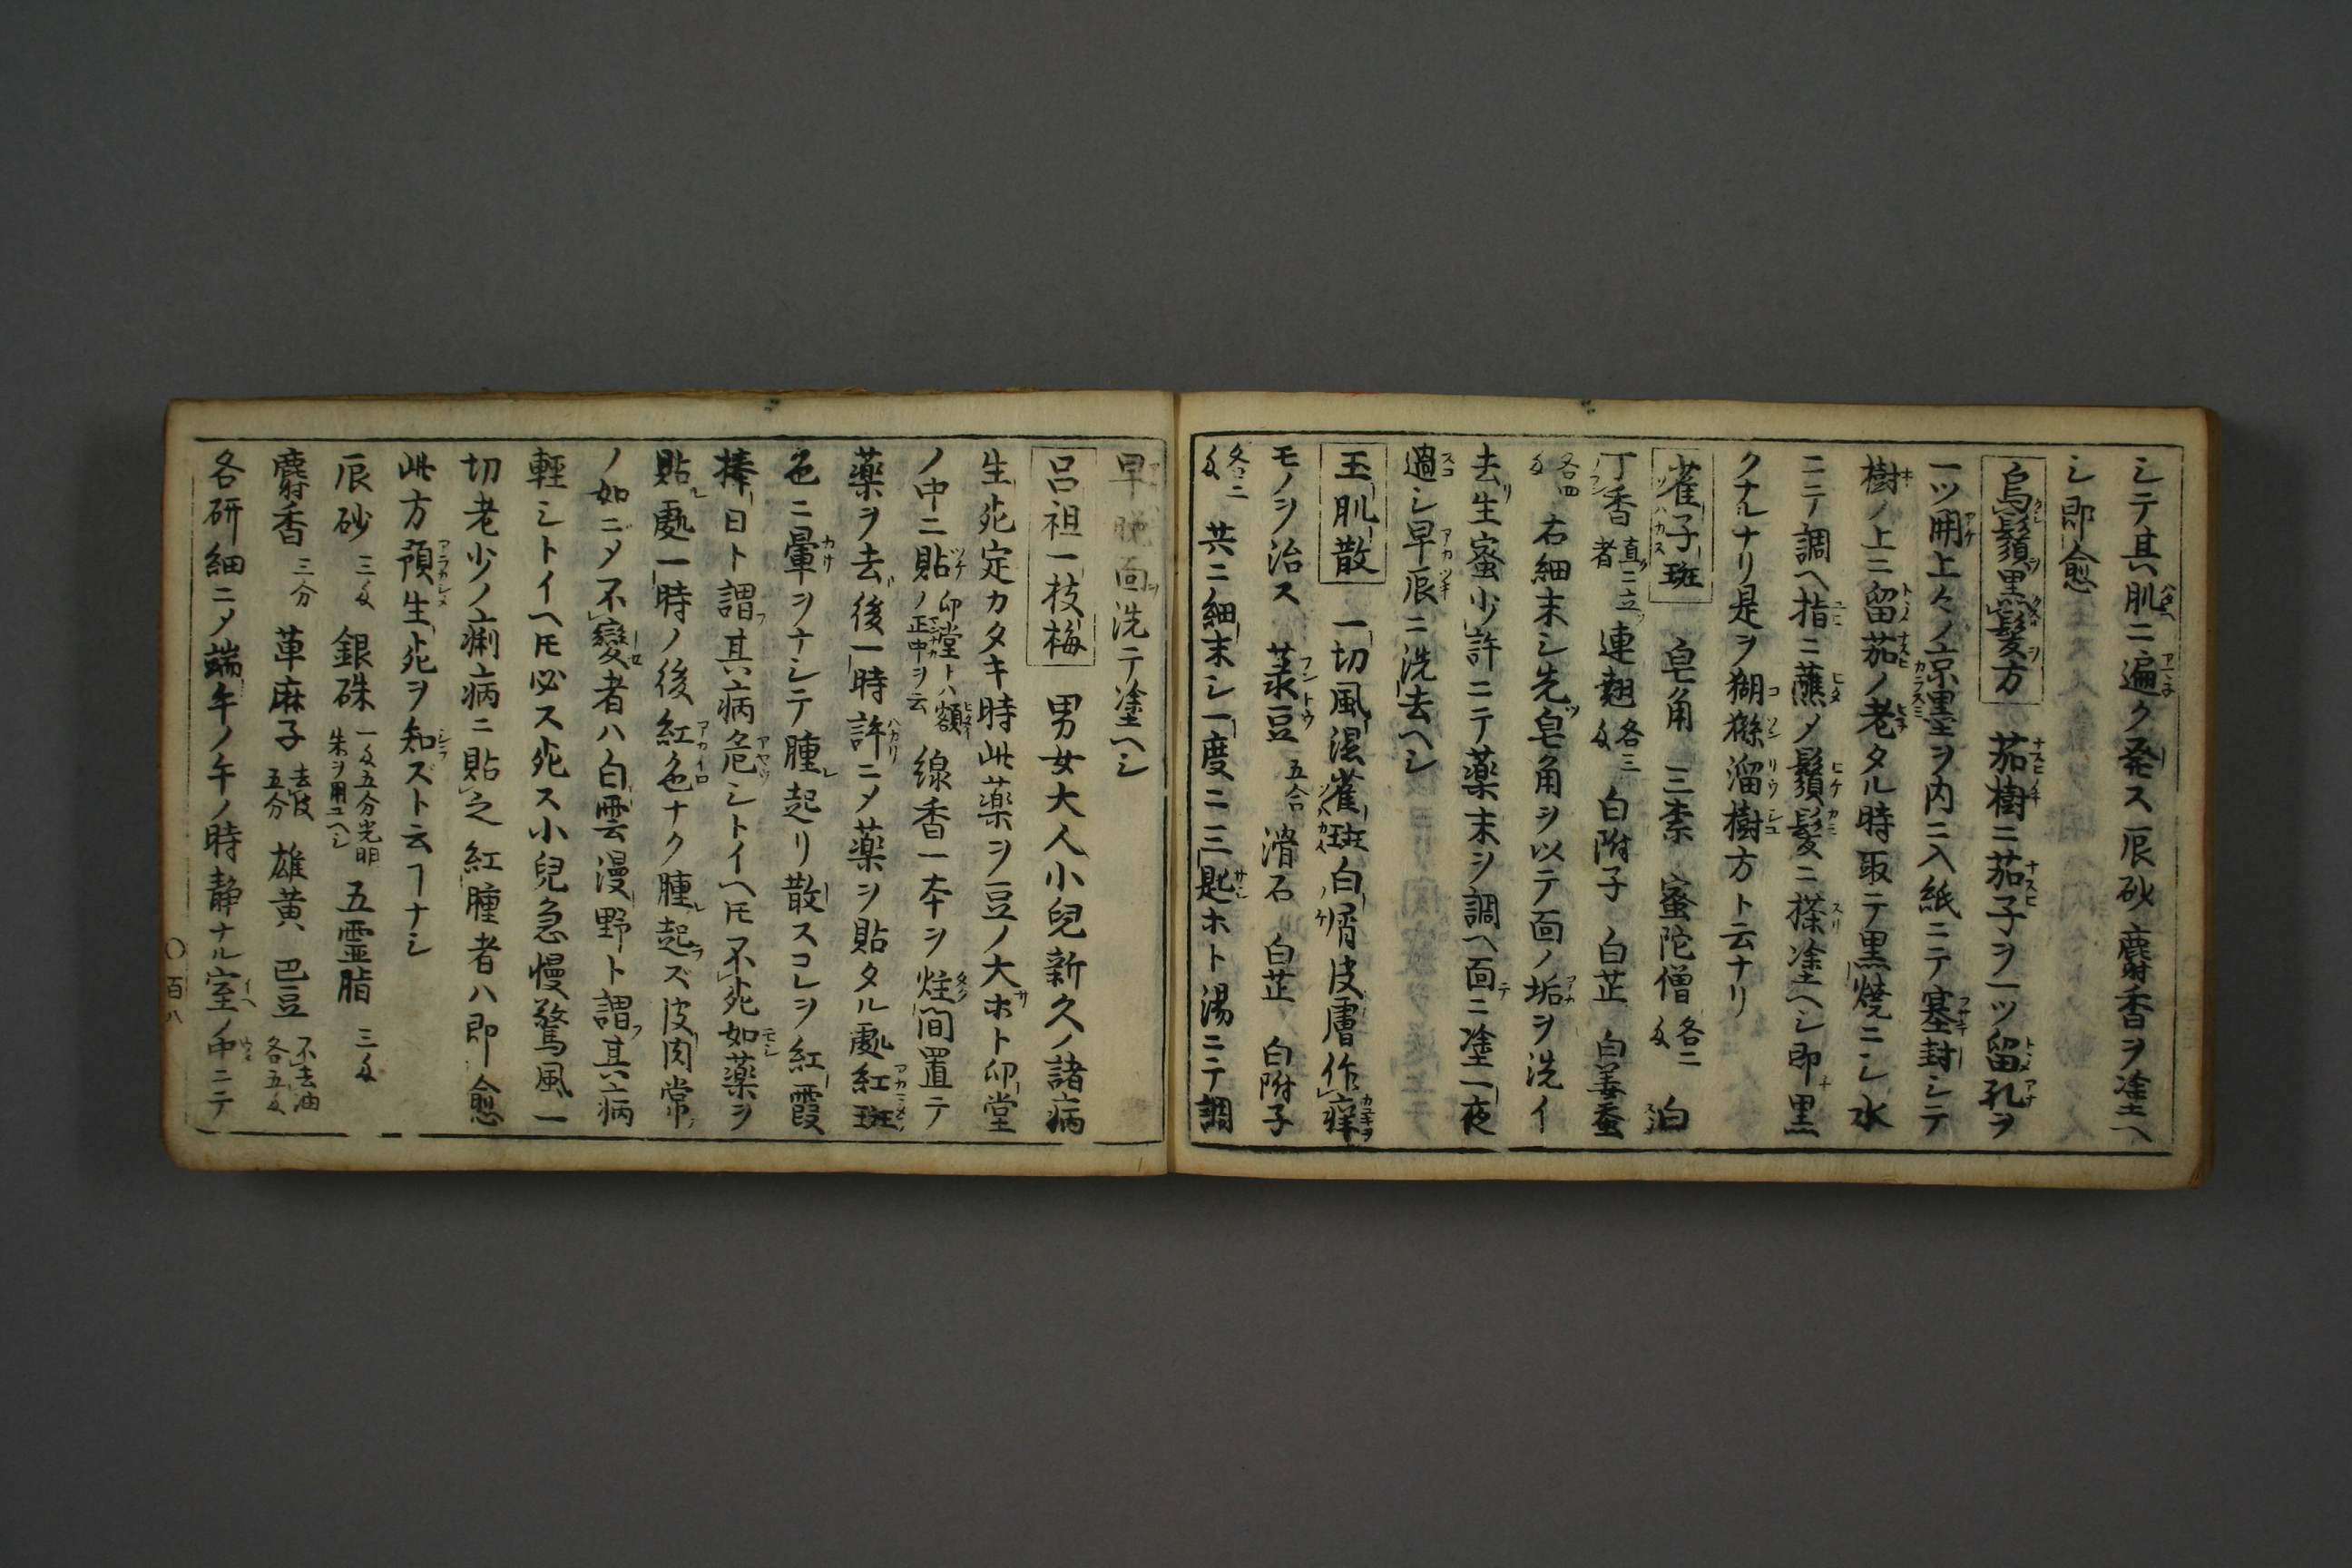 シテ其肌ニ遍ク発ス辰砂麝香ヲ塗ヘ
シ即愈
烏鬚黒髪方 茄樹ニ茄子ヲ一ツ留孔ヲ
一ツ開上々ノ京墨ヲ内ニ入紙ニテ塞封シテ
樹ノ上ニ留茄ノ老タル時取テ黒焼ニシ水
ニテ調ヘ指ニ蘸メ鬚髪ニ搽塗ヘシ即黒
クナルナリ是ヲ猢猻溜樹方ト云ナリ
雀子斑 皂角 三柰 蜜陀僧 各二匁 白
丁香 直ニ立者 連翹 各三匁 白附子 白芷 白姜蚕
各四匁 右細末シ先皂角ヲ以テ面ノ垢ヲ洗イ
去生蜜少許ニテ薬末ヲ調ヘ面ニ塗一夜
過シ早辰ニ洗去ヘシ
玉肌散 一切風湿雀斑白屑皮膚作痒
モノヲ治ス 菉豆 五合 滑石 白芷 白附子
各二匁 共ニ細末シ一度ニ三匙ホト湯ニテ調
早晩面洗テ塗ヘシ
呂祖一枝梅 男女大人小兒新久ノ諸病
生死定カタキ時此薬ヲ豆ノ大ホト卬堂
ノ中ニ貼 卬堂トハ額ノ正中ヲ云 線香一本ヲ炷間置テ
薬ヲ去後一時許ニメ薬ヲ貼タル處紅斑
色ニ暈ヲナシテ腫起リ散スコレヲ紅霞
捧日ト謂其病危シトイヘ𪜈不死如薬ヲ
貼處一時ノ後紅色ナク腫起ズ皮肉常
ノ如ニメ不變者ハ白雲漫野ト謂其病
輕シトイヘ𪜈必ス死ス小兒急慢驚風一
切老少ノ痢病ニ貼之紅腫者ハ即愈
此方預生死ヲ知ズト云ヿナシ
辰砂 三匁 銀硃 一匁五分光明朱ヲ用ユヘシ 五霊脂 三匁
麝香 三分 萆麻子 去皮五分 雄黄 巴豆 不去油各五匁
各研細ニメ端午ノ午ノ時静ナル室ノ中ニテ
〇百八